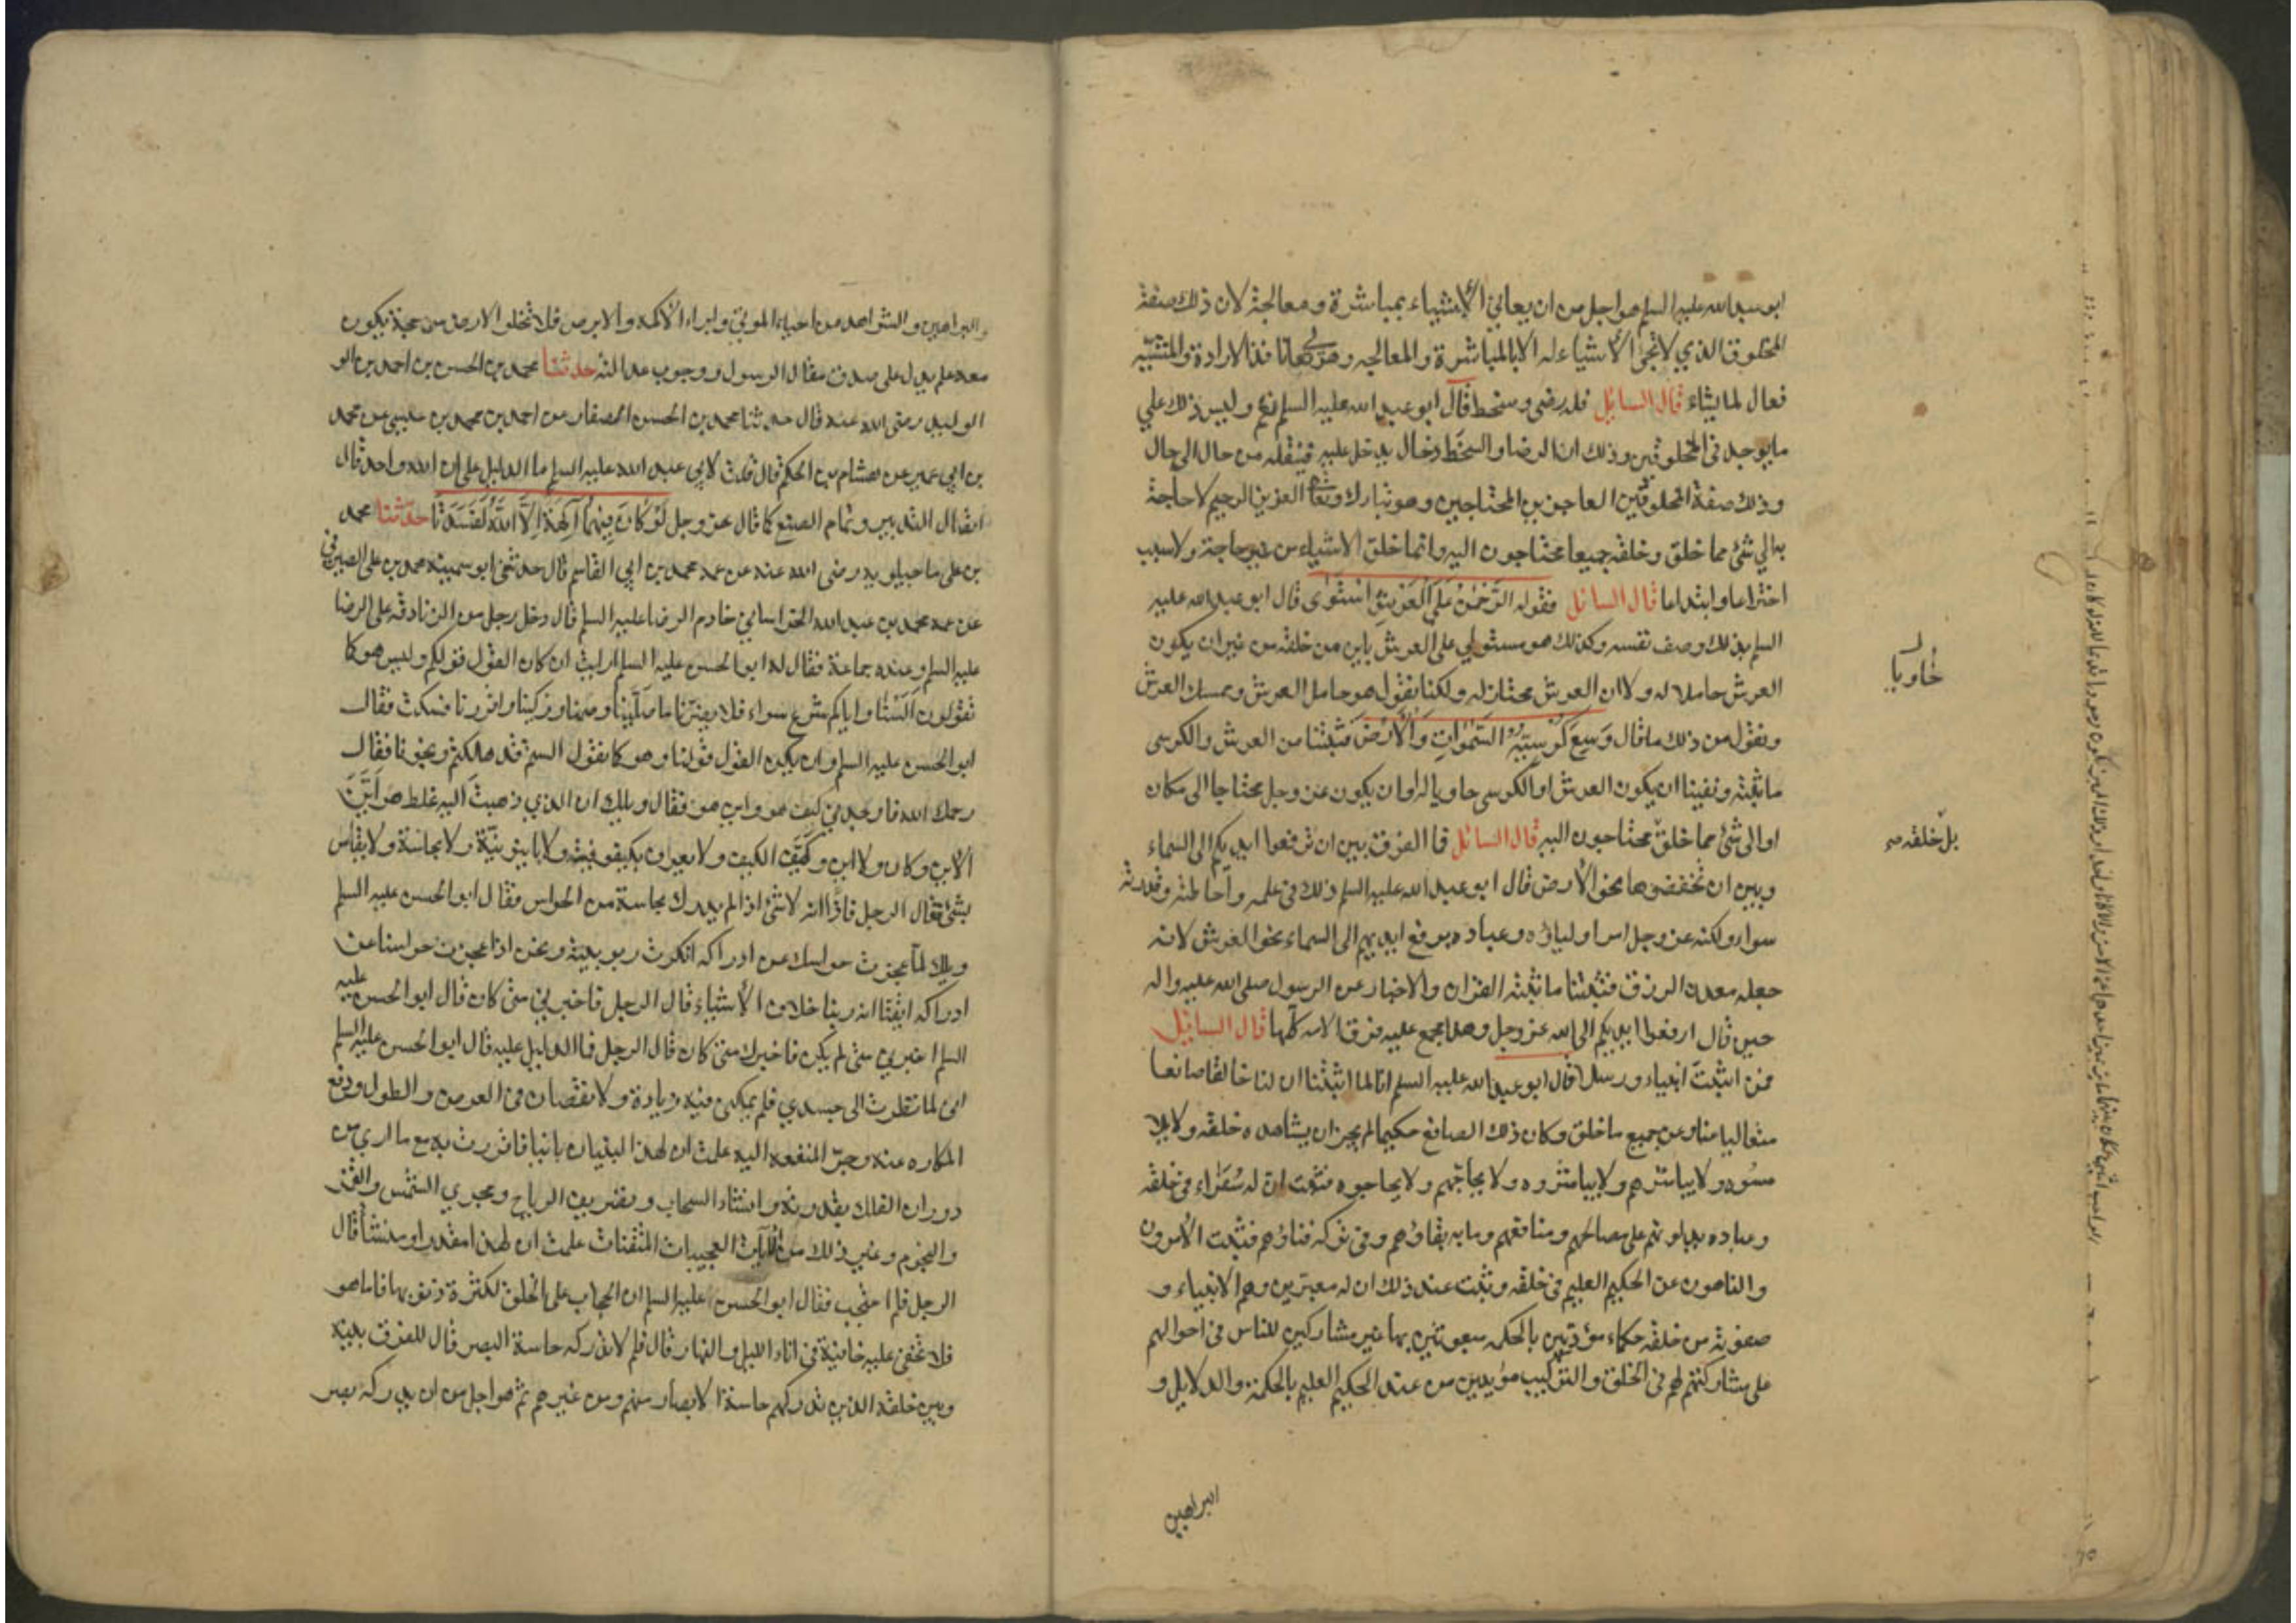 ابو عبد الله عليه السلم هو اجل من ان يعاني الاشياء بمباشرة ومعالجة لان ذلك صفة
المخلوق الذي لا تجئ الاشياء له الا بالمباشرة والمعالجه وهو تعالى نافذ الارادة والمشيه
فعال لما يشاء قال السائل فله رضى وسخط قال ابو عبد الله عليه السلم نعم وليس ذلك على
ما يوجد في المخلوقين وذلك ان الرضا والسخط دخال يدخل عليه فينقله من حال الى حال
وذلك صفة المخلوقين العاجزين المحتاجين وهو تبارك وتعالى العزيز الرحيم لا حاجة
به الى شئ مما خلق وخلقه جميعا محتاجون اليه وانما خلق الاشياء من غير حاجة ولا سبب
اختراعا وابتداعا قال السائل فقوله الرَّحْمٰنُ عَلَى الْعَرْشِ اسْتَوٰى قال ابو عبد الله عليه
السلم بذلك وصف نفسه وكذلك هو مستولي على العرش باين من خلقه من غير ان يكون
العرش حاملا له ولا ان العرش محتاز له ولكنا نقول هو حامل العرش وممسك العرش
ونقول من ذلك ما قال وَسِعَ كُرْسِيُّهُ السَّمٰوَاتِ وَالْاَرْضَ فثبتنا من العرش والكرسي
ما ثبته ونفينا ان يكون العرش او الكرسي حاويا له او ان يكون عز وجل محتاجا الى مكان
او الى شئ مما خلق محتاجون اليه قال السائل فما الفرق بين ان ترفعوا ايديكم الى السماء
وبين ان تخفضوها نحو الارض قال ابو عبد الله عليه السلم ذلك في علمه واحاطته وقدرته
سواء ولكنه عز وجل امر اولياؤه وعباده برفع ايديهم الى السماء نحو العرش لانه
جعله معدن الرزق فثبتنا ما ثبته القران والاخبار عن الرسول صلى الله عليه واله
حين قال ارفعوا ايديكم الى الله عز وجل وهذا مجمع عليه فرق الامه كلها قال السائل
فمن اثبت انبياء ورسلا قال ابو عبد الله عليه السلم انا لما اثبتنا ان لنا خالقا صانعا
متعاليا عنا وعن جميع ما خلق وكان ذلك الصانع حكيما لم يجز ان يشاهده خلقه ولا يلا
مسوه ولا يباشرهم ولا يباشروه ولا يحاجهم ولا يحاجوه فثبت ان له سُفَرَاء في خلقه
وعباده يدلونهم على مصالحهم ومنافعهم وما به بقاؤهم وفي تركه فناؤهم فثبت الامرون
والناهون عن الحكيم العليم في خلقه وثبت عند ذلك ان له معبرين وهم الانبياء و
صفوته من خلقه حكماء مؤدبين بالحكمه مبعوثين بها غير مشاركين للناس في احوالهم
على مشاركتهم لهم في الخلق والتركيب مؤيدين من عند الحكيم العليم بالحكمة والدلايل و
حاويا
بل خلقه
البراهين
والبراهين والشواهد من احياء الموتى وابراء الاكمه والابرص فلا تخلو الارض من حجة يكون
معه علم يدل على صدق مقال الرسول ووجوب عدالته حدثنا محمد بن الحسن بن احمد بن الو
الوليد رضى الله عنه قال حدثنا محمد بن الحسن الصفار عن احمد بن محمد بن عيسى عن محمد
بن ابي عمير عن هشام بن الحكم قال قلت لابي عبد الله عليه السلم ما الدليل على ان الله واحد قال
اتصال التدبير وتمام الصنع كما قال عز وجل لَوْ كَانَ فِيهِمَا آلِهَةٌ اِلَّا اللّٰهُ لَفَسَدَتَا حدثنا محمد
بن على ماجيلويه رضى الله عنه عن عمه محمد بن ابي القاسم قال حدثني ابو سمينه محمد بن على الصيرفي
عن محمد بن عبد الله الخراساني خادم الرضا عليه السلم قال دخل رجل من الزنادقه على الرضا
عليه السلم وعنده جماعة فقال له ابو الحسن عليه السلم ارايت ان كان القول قولكم وليس هو كما
تقولون السنا واياكم شرع سواء فلا يضرنا ما صلينا وصمنا وزكينا واقررنا فسكت فقال
ابو الحسن عليه السلم وان يكن القول قولنا وهو كما نقول الستم قد هلكتم ونجونا فقال
رحمك الله فاوجدني كيف هو واين هو فقال ويلك ان الذي ذهبت اليه غلط هو اَيَّنَ
الاين وكان ولا اين وكيّف الكيف ولا يعرف بكيفوفية ولا باينونيّة ولا بحاسة ولا يقاس
بشئ فقال الرجل فاذا انه لا شئ اذ لم يدرك بحاسة من الحواس فقال ابو الحسن عليه السلم
ويلك لما عجزت حواسك عن ادراكه انكرت ربوبيته ونحن اذا عجزت حواسنا عن
ادراكه ايقنا انه ربنا خلاف الاشياء قال الرجل فاخبرني متى كان قال ابو الحسن عليه
السلم اخبرني متى لم يكن فاخبرك متى كان قال الرجل فما الدليل عليه قال ابو الحسن عليه السلم
اني لما نظرت الى جسدي فلم يمكني فيه زيادة ولا نقصان في العرض والطول ودفع
المكاره عنه وجر المنفعه اليه علمت ان لهذا البنيان بانيا فاقررت به مع ما ارى من
دوران الفلك بقدرته وانشاء السحاب وتصريف الرياح ومجري الشمس والقمر
والنجوم وغير ذلك من الايات العجيبات المتقنات علمت ان لهذا مقدرا ومنشأ قال
الرجل فلم احتجب فقال ابو الحسن عليه السلم ان الحجاب على الخلق لكثرة ذنوبها فاما هو
فلا تخفى عليه خافية في اناء الليل والنهار قال فلم لا تدركه حاسة البصر قال للفرق بينه
وبين خلقه الذين تدركهم حاسة الابصار منهم ومن غيرهم ثم هو اجل من ان يدركه بصر